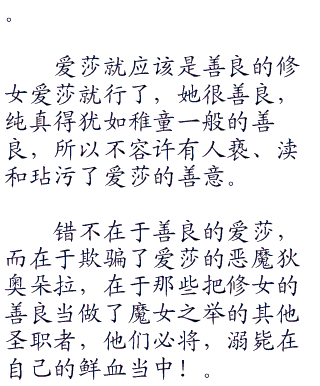 。
爱莎就应该是善良的修
女爱莎就行了，她很善良，
纯真得犹如稚童一般的善
良，所以不容许有人亵、渎
和玷污了爱莎的善意。
错不在于善良的爱莎，
而在于欺骗了爱莎的恶魔狄
奥朵拉，在于那些把修女的
善良当做了魔女之举的其他
圣职者，他们必将，溺毙在
自己的鲜血当中！。